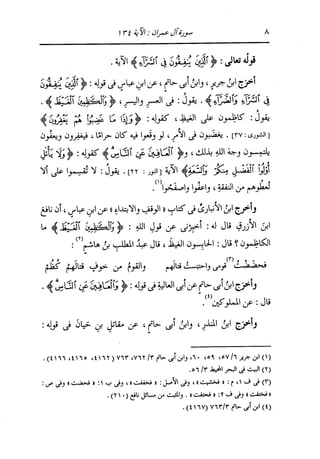 ٨ سورة آل عمران : الآية ١٣٤
قوله تعالى : ﴿ الَّذِينَ يُنفِقُونَ فِي السَّرَّاءِ ﴾ الآية .
أخرج ابنُ جريرٍ ، وابنُ أبى حاتمٍ ، عن ابنِ عباسٍ فى قولِه : ﴿ الَّذِينَ يُنفِقُونَ
فِي السَّرَّاءِ وَالضَّرَّاءِ ﴾ . يقولُ : فى العسرِ واليسرِ ، ﴿ وَالْكَاظِمِينَ الْغَيْظَ ﴾ .
يقولُ : كاظمون على الغيظِ ، كقولِه : ﴿ وَإِذَا مَا غَضِبُوا هُمْ يَغْفِرُونَ ﴾
[الشورى : ٣٧] . يغضبون فى الأمرِ ، لو وقَعوا فيه كان حرامًا ، فيغفِرون ويعفُون
يلتمِسون وجهَ اللهِ بذلك ، و﴿ وَالْعَافِينَ عَنِ النَّاسِ ﴾ كقولِه : ﴿ وَلَا يَأْتَلِ
أُولُوا الْفَضْلِ مِنكُمْ وَالسَّعَةِ ﴾ الآية [النور : ٢٢] . يقولُ : لا تُقسِموا على ألا
تُعطُوهم من النفقةِ ، واعفُوا واصفَحوا(١) .
وأخرج ابنُ الأنبارىِّ فى كتابِ « الوقفِ والابتداءِ » عن ابنِ عباسٍ ، أن نافعَ
ابنَ الأزرقِ قال له : أخبِرْنى عن قولِ اللهِ : ﴿ وَالْكَاظِمِينَ الْغَيْظَ ﴾ ما
الكاظمون ؟ قال : الحابِسون الغيظَ ، قال عبدُ المطلبِ بنُ هاشمٍ(٢) :
فحضضتُ(٣) قومى واحتبستُ قتالَهم والقومُ من خوفِ قتالِهم كُظُمُ
وأخرج ابنُ أبى حاتمٍ عن أبى العاليةِ فى قولِه : ﴿ وَالْعَافِينَ عَنِ النَّاسِ ﴾ .
قال : عن المملوكين(٤) .
وأخرج ابنُ المنذرِ ، وابنُ أبى حاتمٍ ، عن مقاتلِ بنِ حيانَ فى قولِه :
(١) ابن جرير ٦/ ٥٧، ٥٩، ٦٠، وابن أبى حاتم ٣/ ٧٦٢، ٧٦٣ (٤١٦٢، ٤١٦٥، ٤١٦٦) .
(٢) البيت فى البحر المحيط ٣/ ٥٦.
(٣) فى ف ١، م : « فخشيت » ، وفى الأصل : « فخففت » ، وفى ب ١ : « فحفضت » ، وفى ص :
والمثبت من مسائل نافع (٢١٠) .
(٤) ابن أبى حاتم ٣/ ٧٦٣ (٤١٦٧) .